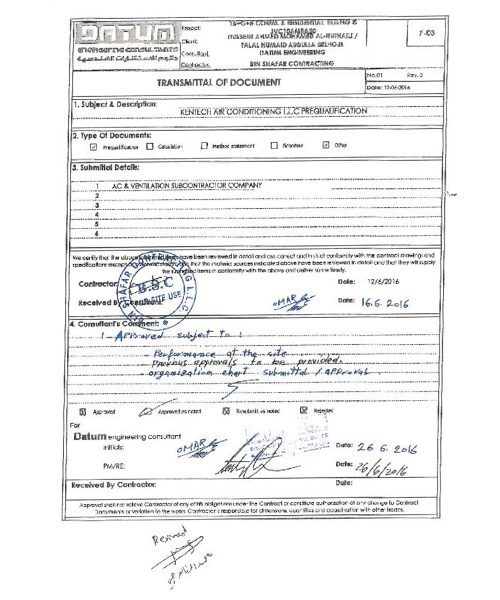 DATUM
ENGINEERING CONSULTANTS
Project:
G+8
Client:
TALAL HUMAID ABDULLA BELHOUL
DATUM ENGINEERING
Contractor:
BIN SHAFAR CONTRACTING
F-03
TRANSMITTAL OF DOCUMENT
No.01 Rev. 0
Date: 12-06-2016
1. Subject & Description:
KENTECH AIR CONDITIONING L.L.C PREQUALIFICATION
2. Type Of Documents:
Prequalification Calculation Method statement Schedule Other
3. Submittal Details:
1 AC & VENTILATION SUBCONTRACTOR COMPANY
2
3
4
5
6
We certify that the above have been reviewed in detail and are correct and in strict conformity with the contract drawings and
specifications except that the materials sources indicated above have been reviewed in detail and that they will supply
items in conformity with the above and deliver on time.
Contractor: Date: 12/6/2016
B.S.C
SITE USE
BIN SHAFAR L.L.C.
Received By OMAR Date: 16.6.2016
4. Consultant's Comment:
1- Approved subject to:
- Performance at the site
- Previous approvals to be provided.
- organization chart submittal / approval.
Approved Approved as noted Resubmit as noted Rejected
For
Datum engineering consultant
Initials: OMAR Date: 26.6.2016
PM/RE: Date: 26/6/2016
Received By Contractor: Date:
Approval shall not relieve Contractor of any of his obligations under the Contract or constitute authorization of any change to Contract
Documents or variation to the works. Contractor is responsible for dimensions, quantities and coordination with other trades.
Received